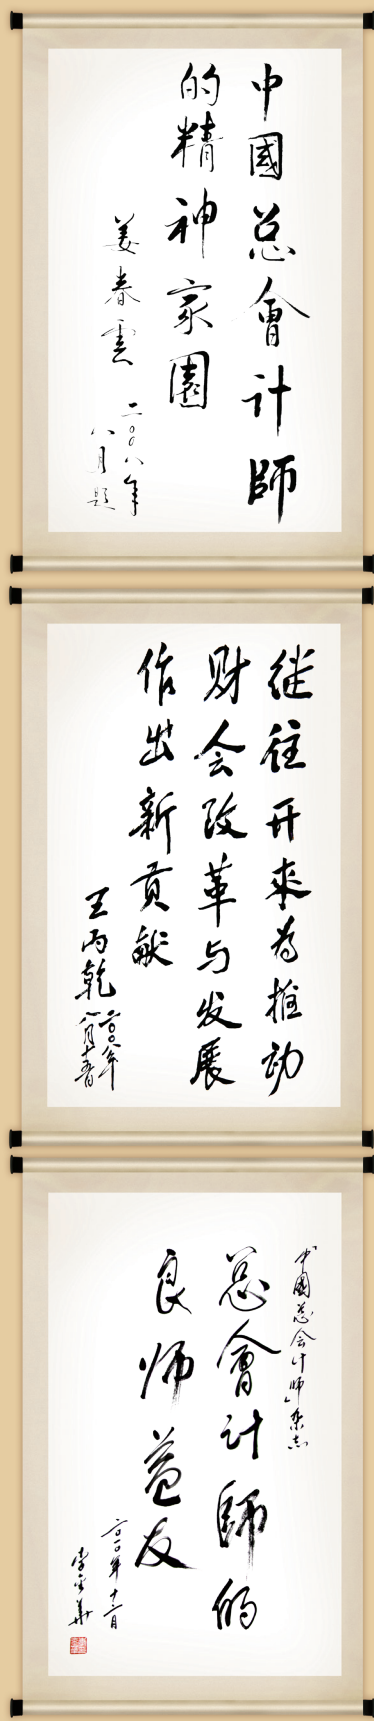 中國总會计師
的精神家園
姜春雲
二〇〇八年
八月題
继往开来为推动
财会改革与发展
作出新贡献
王丙乾
二〇〇八年
八月十五日
《中國总会计师》杂志
总會计師的
良师益友
二〇一〇年十二月
李金華